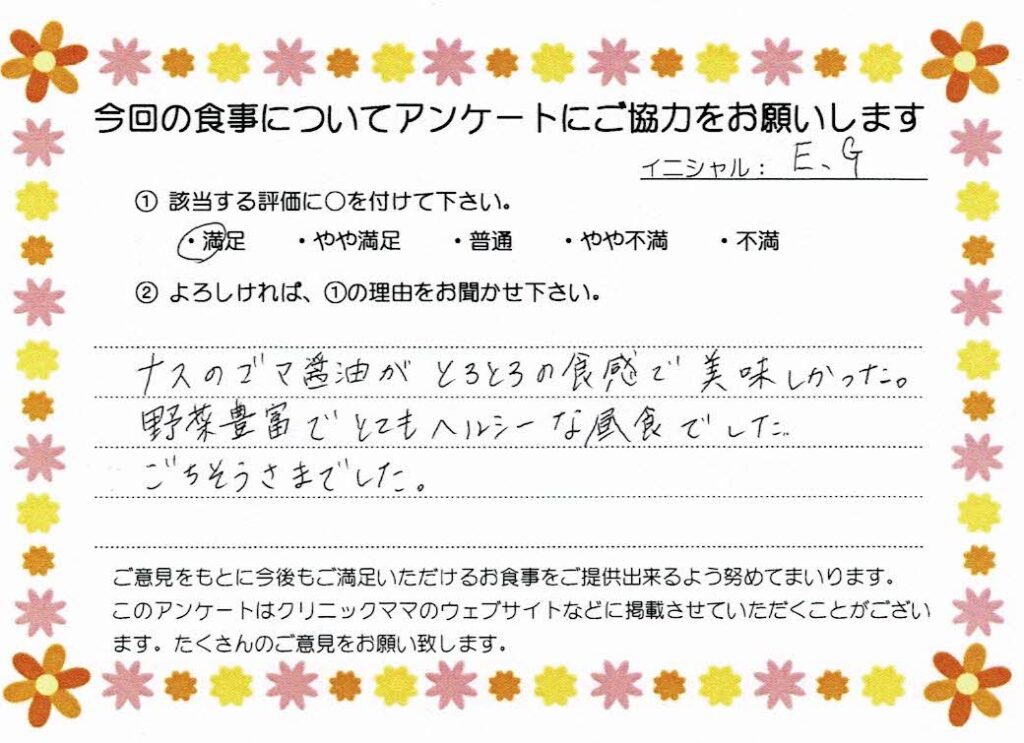 今回の食事についてアンケートにご協力をお願いします
イニシャル： E、G
① 該当する評価に○を付けて下さい。
・満足 ・やや満足 ・普通 ・やや不満 ・不満
② よろしければ、①の理由をお聞かせ下さい。
ナスのゴマ醤油がとろとろの食感で美味しかった。
野菜豊富でとてもヘルシーな昼食でした。
ごちそうさまでした。
ご意見をもとに今後もご満足いただけるお食事をご提供出来るよう努めてまいります。
このアンケートはクリニックママのウェブサイトなどに掲載させていただくことがござい
ます。たくさんのご意見をお願い致します。